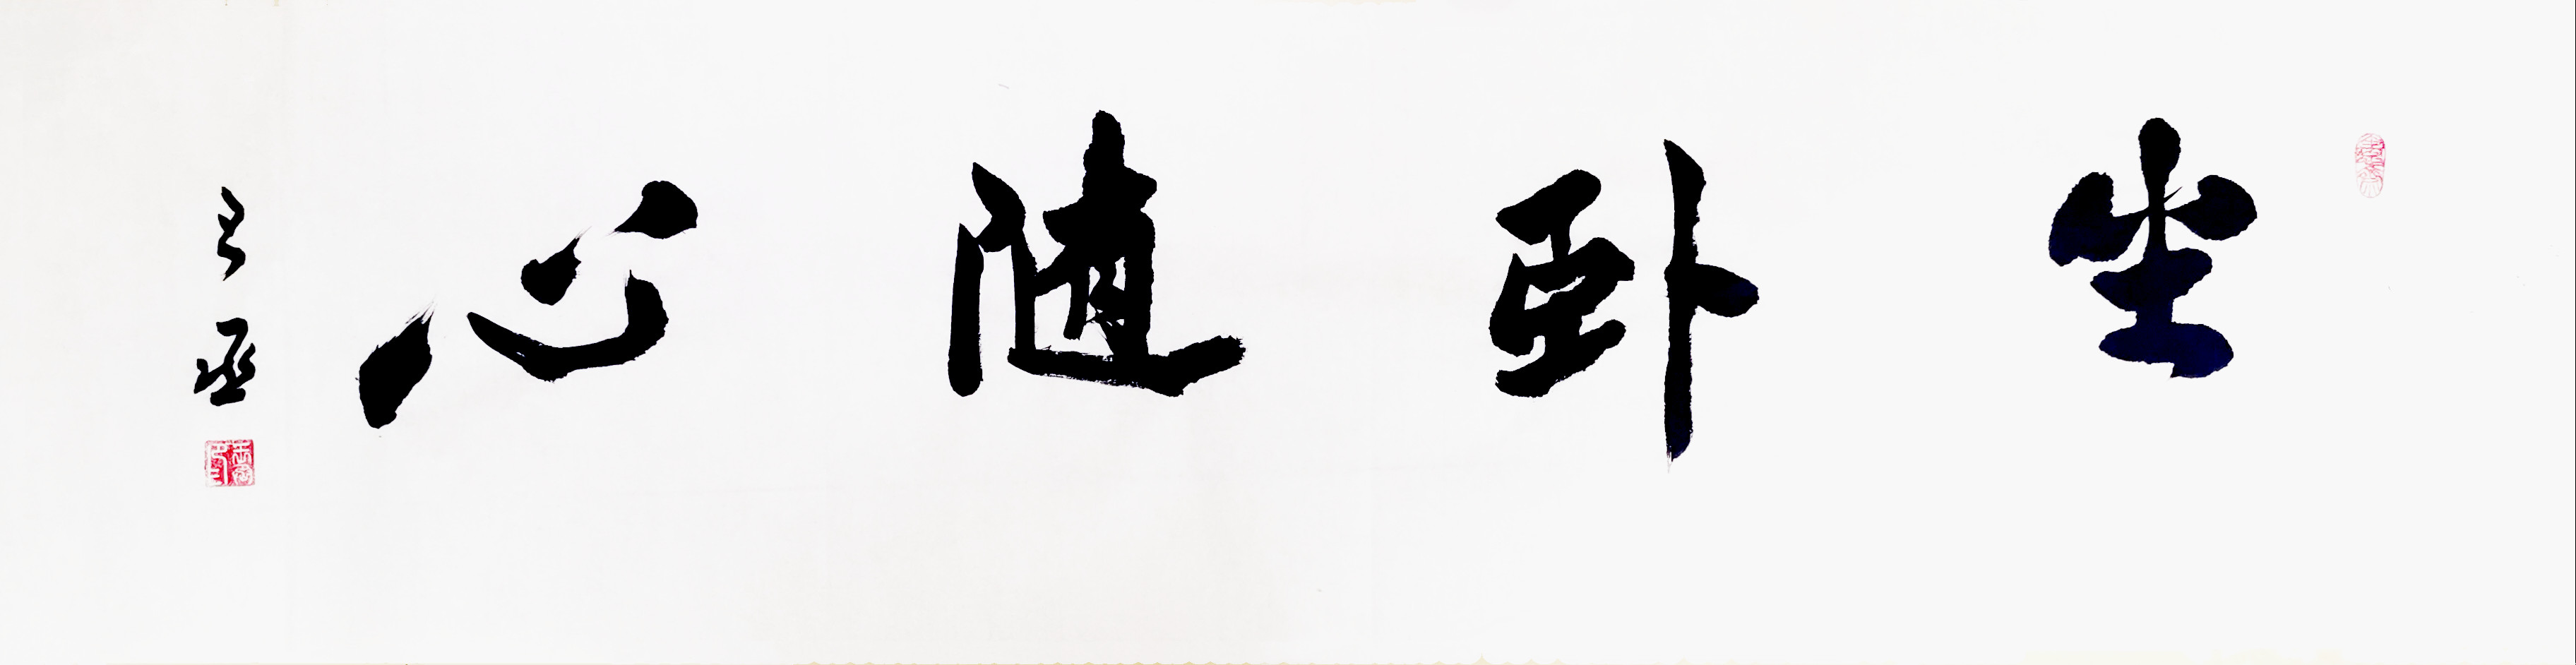 坐卧随心